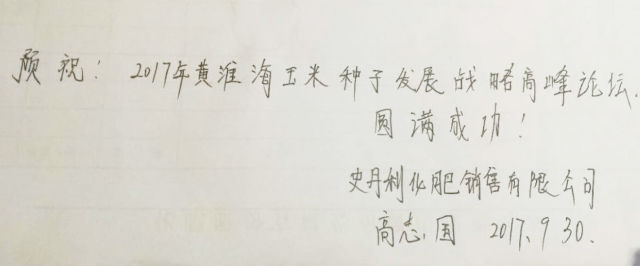 预祝！2017年黄淮海玉米种子发展战略高峰论坛.
圆满成功！
史丹利化肥销售有限公司
高志国 2017、9 30.